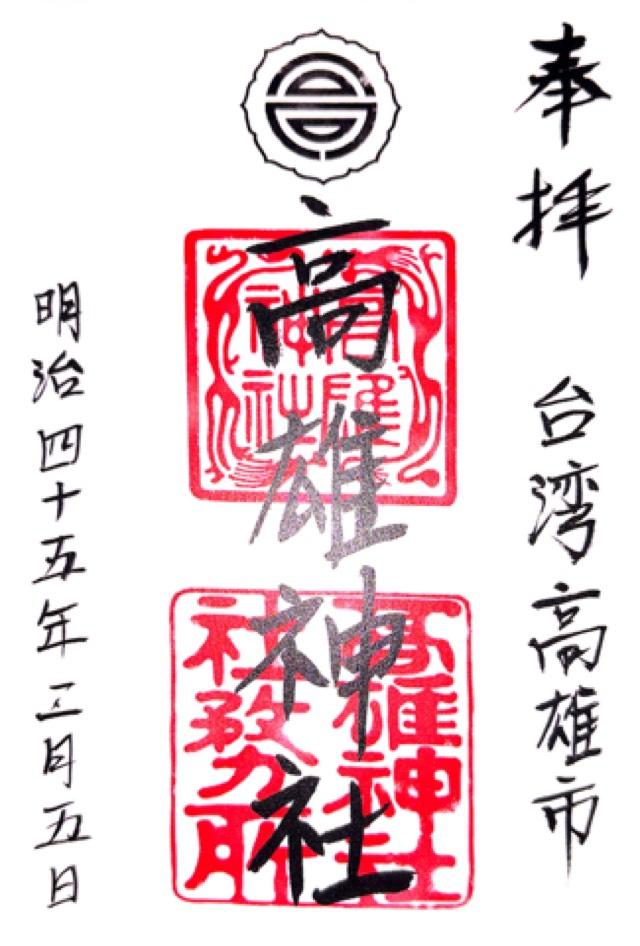 奉拝 台湾高雄市
高雄神社
高雄
神社
高雄神社
社務所
明治四十五年二月五日